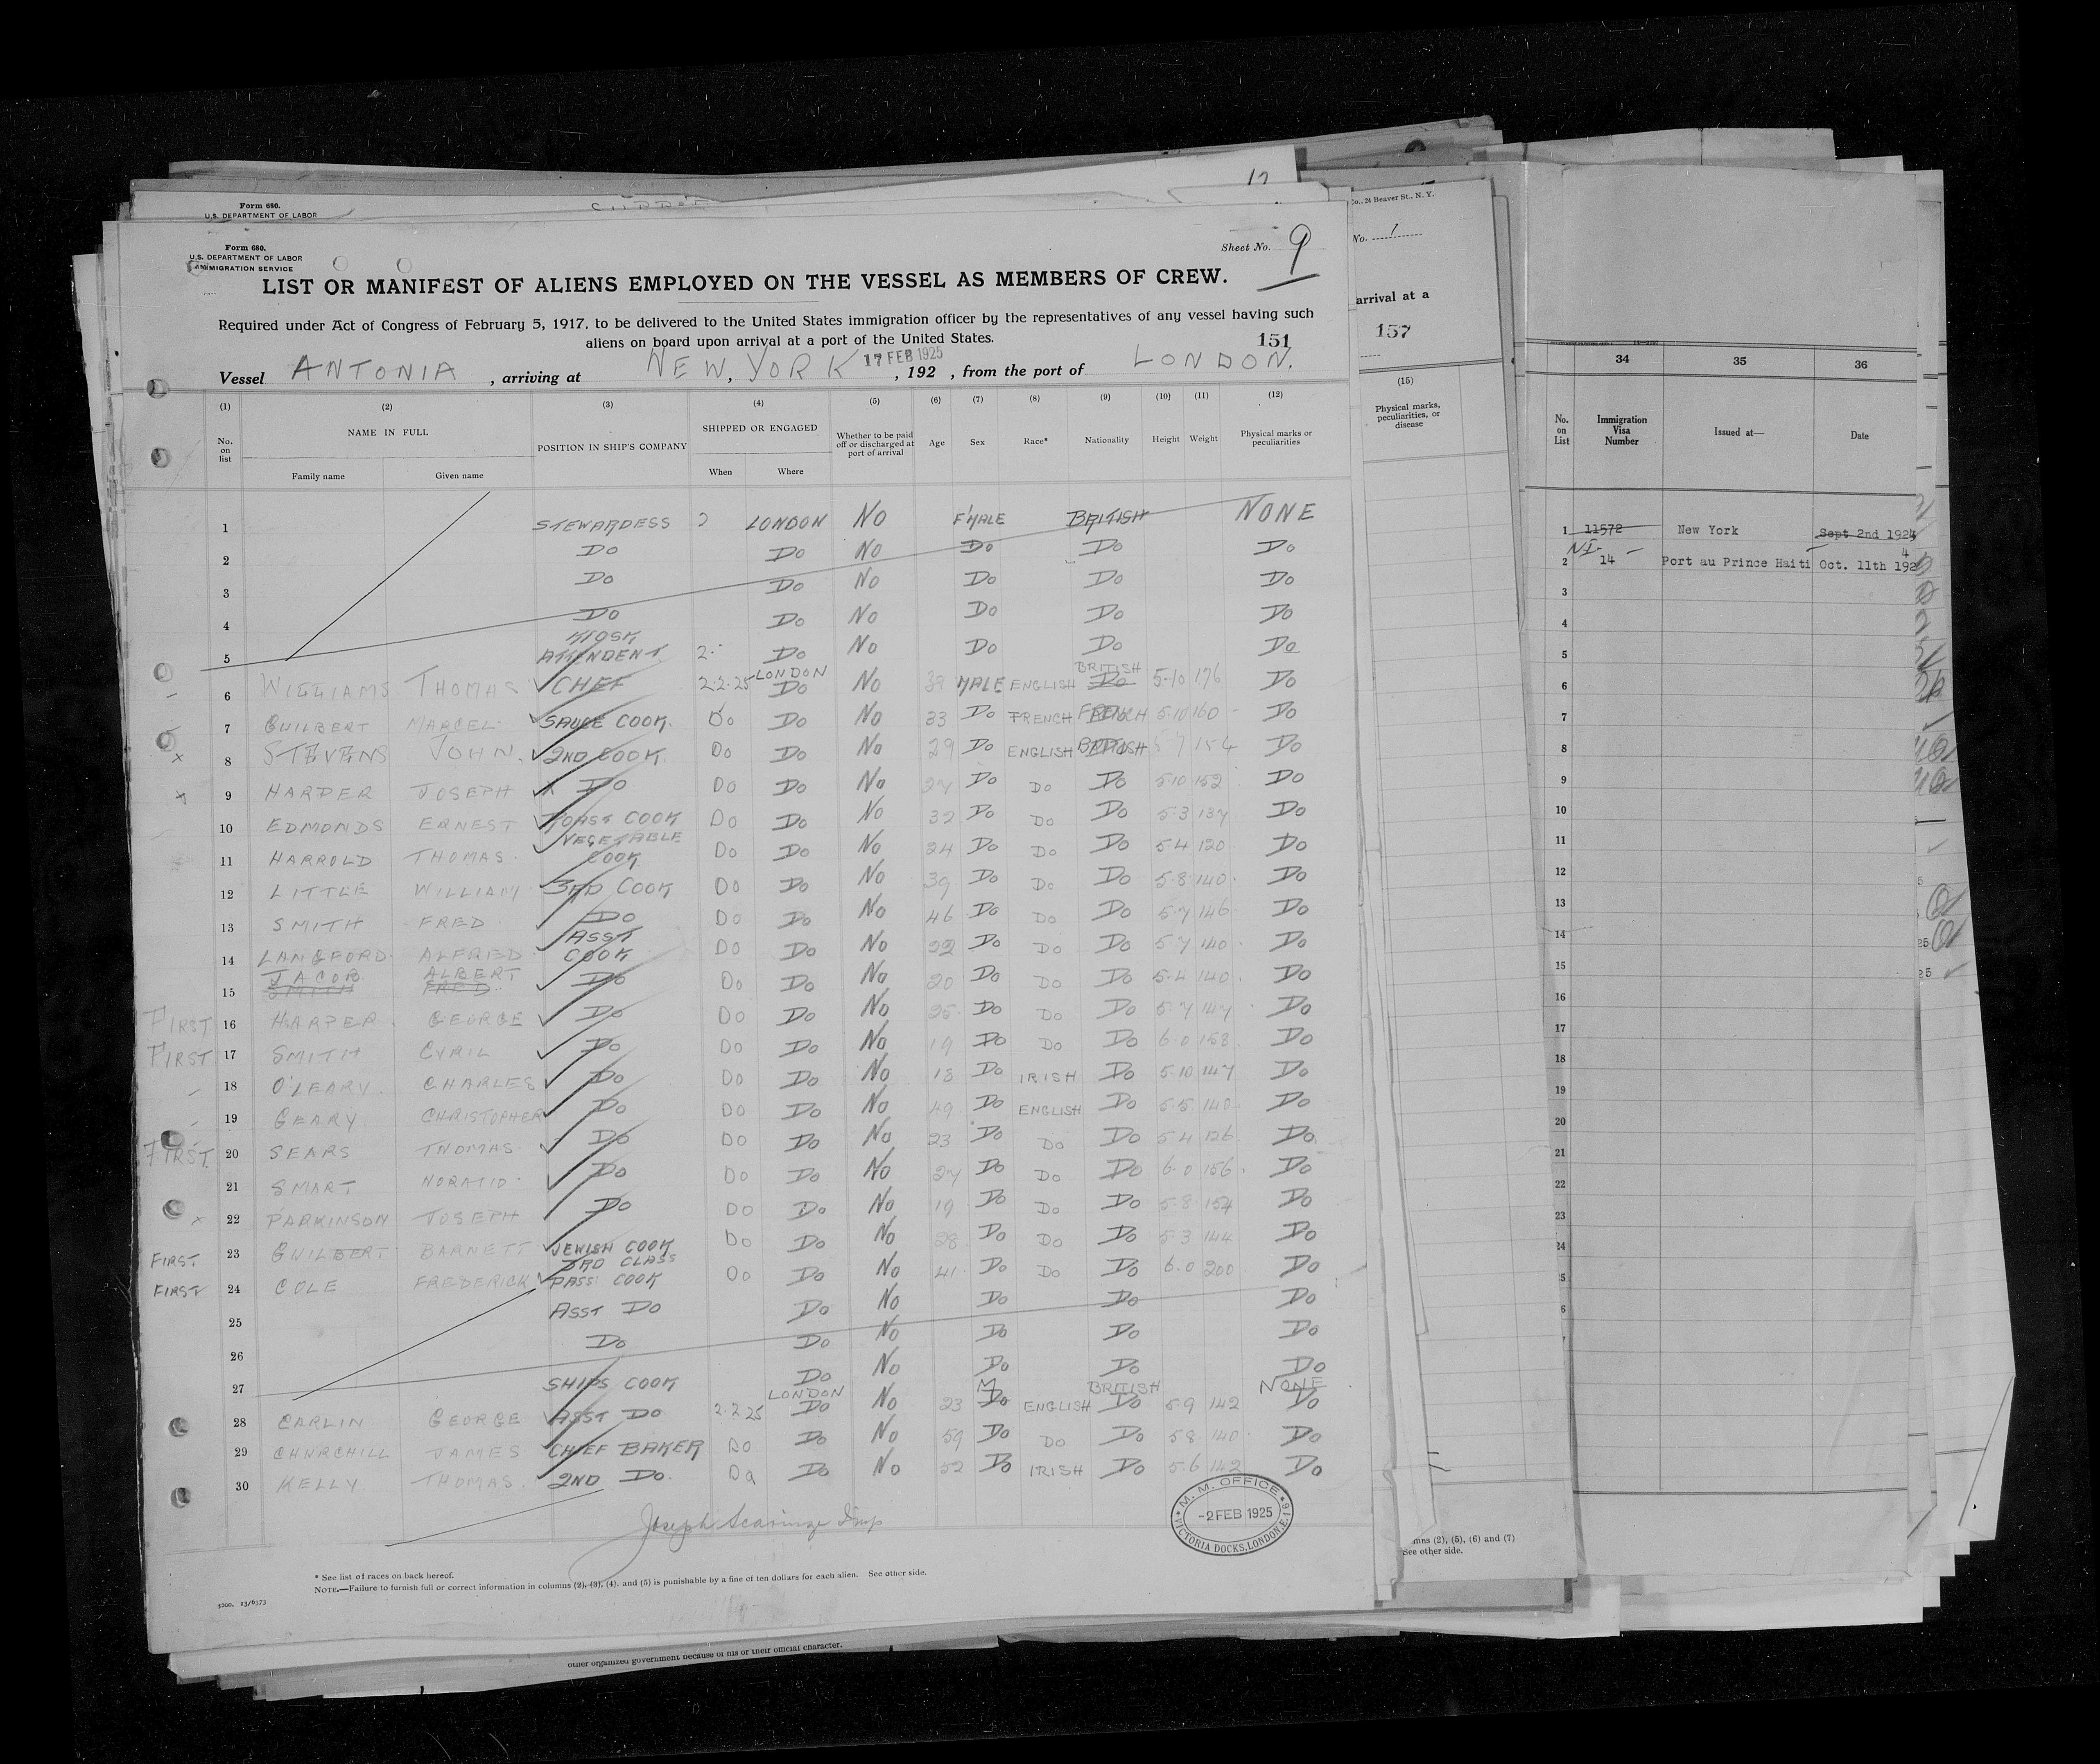 Form 680.
U.S. DEPARTMENT OF LABOR
Form 680.
U.S. DEPARTMENT OF LABOR
IMMIGRATION SERVICE
Sheet No. 9
LIST OR MANIFEST OF ALIENS EMPLOYED ON THE VESSEL AS MEMBERS OF CREW.
Required under Act of Congress of February 5, 1917, to be delivered to the United States immigration officer by the representatives of any vessel having such
aliens on board upon arrival at a port of the United States.
151
Vessel ANTONIA, arriving at NEW YORK 17 FEB 1925, 192 , from the port of LONDON.
(1) (2) (3) (4) (5) (6) (7) (8) (9) (10) (11) (12)
No. on list NAME IN FULL Family name Given name POSITION IN SHIP'S COMPANY SHIPPED OR ENGAGED When Where Whether to be paid off or discharged at port of arrival Age Sex Race* Nationality Height Weight Physical marks or peculiarities
1 STEWARDESS 2 LONDON NO F'MALE BRITISH NONE
2 Do Do No Do Do Do
3 Do Do No Do Do Do
4 Do Do No Do Do Do
5 KIOSK ATTENDENT 2. Do No Do Do Do
6 WILLIAMS THOMAS CHEF 2.2.25 LONDON Do No 39 MALE ENGLISH BRITISH Do 5-10 176 Do
7 GUILBERT MARCEL SAUCE COOK Do Do No 33 Do FRENCH FRENCH 5.10 160 Do
8 STEVENS JOHN 2ND COOK Do Do No 29 Do ENGLISH BRITISH 5-7 154 Do
9 HARPER JOSEPH Do Do Do No 27 Do Do Do 5-10 152 Do
10 EDMONDS ERNEST ROAST COOK Do Do No 32 Do Do Do 5-3 137 Do
11 HARROLD THOMAS VEGETABLE COOK Do Do No 24 Do Do Do 5-4 120 Do
12 LITTLE WILLIAM 3RD COOK Do Do No 39 Do Do Do 5-8 140 Do
13 SMITH FRED Do Do Do No 46 Do Do Do 5-7 146 Do
14 LANGFORD ALFRED ASST COOK Do Do No 22 Do Do Do 5-7 140 Do
15 JACOB SMITH ALBERT FRED Do Do Do No 20 Do Do Do 5-4 140 Do
FIRST 16 HARPER GEORGE Do Do Do No 25 Do Do Do 5-7 147 Do
FIRST 17 SMITH CYRIL Do Do Do No 19 Do Do Do 6-0 158 Do
18 O'LEARY CHARLES Do Do Do No 18 Do IRISH Do 5-10 147 Do
19 GEARY CHRISTOPHER Do Do Do No 49 Do ENGLISH Do 5-5 140 Do
FIRST 20 SEARS THOMAS Do Do Do No 23 Do Do Do 5-4 126 Do
21 SMART HORATIO Do Do Do No 27 Do Do Do 6-0 156 Do
22 PARKINSON JOSEPH Do Do Do No 19 Do Do Do 5-8 154 Do
FIRST 23 GUILBERT BARNETT JEWISH COOK Do Do No 28 Do Do Do 5-3 144 Do
FIRST 24 COLE FREDERICK 3RD CLASS PASS COOK Do Do No 41 Do Do Do 6-0 200 Do
25 ASST Do Do No Do Do Do
26 Do Do No Do Do Do
27 SHIPS COOK Do No Do Do Do
28 CARLIN GEORGE ASST Do 2.2.25 LONDON Do No 23 M Do ENGLISH BRITISH Do 5-9 142 NONE Do
29 CHURCHILL JAMES CHIEF BAKER Do Do No 59 Do Do Do 5-8 140 Do
30 KELLY THOMAS 2ND Do Do Do No 52 Do IRISH Do 5-6 142 Do
Joseph Scaringe
M. M. OFFICE
-2 FEB 1925
VICTORIA DOCKS, LONDON, E.16
* See list of races on back hereof.
NOTE.—Failure to furnish full or correct information in columns (2), (3), (4), and (5) is punishable by a fine of ten dollars for each alien. See other side.
4200. 13/6373
other organized government because of his or their official character.
Co., 24 Beaver St., N. Y.
No. 1
arrival at a
157
(15)
Physical marks, peculiarities, or disease
(2), (5), (6) and (7)
See other side.
34 35 36
No. on List Immigration Visa Number Issued at— Date
1 11572 New York Sept 2nd 1924
NI-
2 14 Port au Prince Haiti Oct. 11th 1924
3
4
5
6
7
8
9
10
11
12
13
14
15
16
17
18
19
20
21
22
23
24